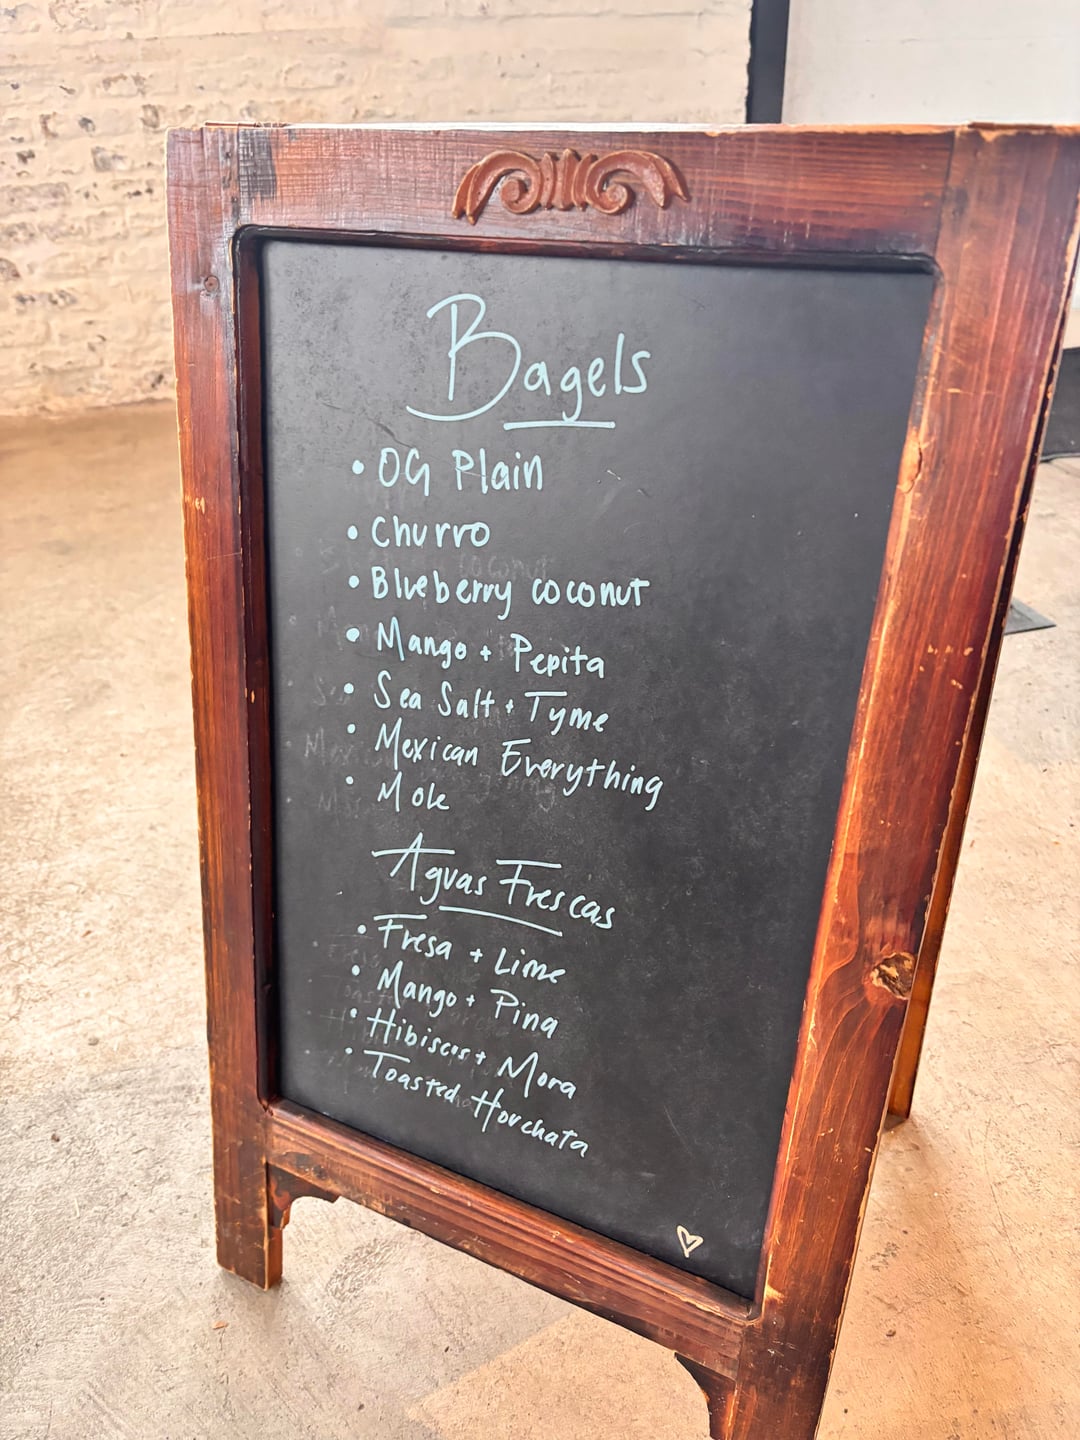 Bagels
• OG Plain
• Churro
• Blueberry coconut
• Mango + Pepita
• Sea Salt + Tyme
• Mexican Everything
• Mole
Aguas Frescas
• Fresa + Lime
• Mango + Pina
• Hibiscus + Mora
• Toasted Horchata